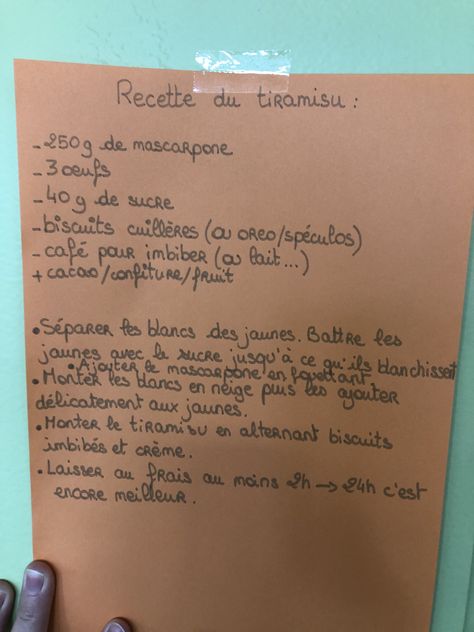 Recette du tiramisu :
- 250g de mascarpone
- 3 oeufs
- 40g de sucre
- biscuits cuillères (ou oreo/spéculos)
- café pour imbiber (ou lait...)
+ cacao/confiture/fruit
• Séparer les blancs des jaunes. Battre les
jaunes avec le sucre jusqu'à ce qu'ils blanchissent
• Ajouter le mascarpone en fouettant
• Monter les blancs en neige puis les ajouter
délicatement aux jaunes.
• Monter le tiramisu en alternant biscuits
imbibés et crème.
• Laisser au frais au moins 2h → 24h c'est
encore meilleur.